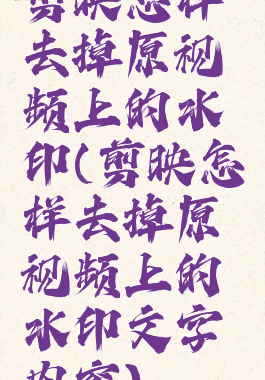 剪映怎样
去掉原视
频上的水
印(剪映怎
样去掉原
视频上的
水印文字
内容)